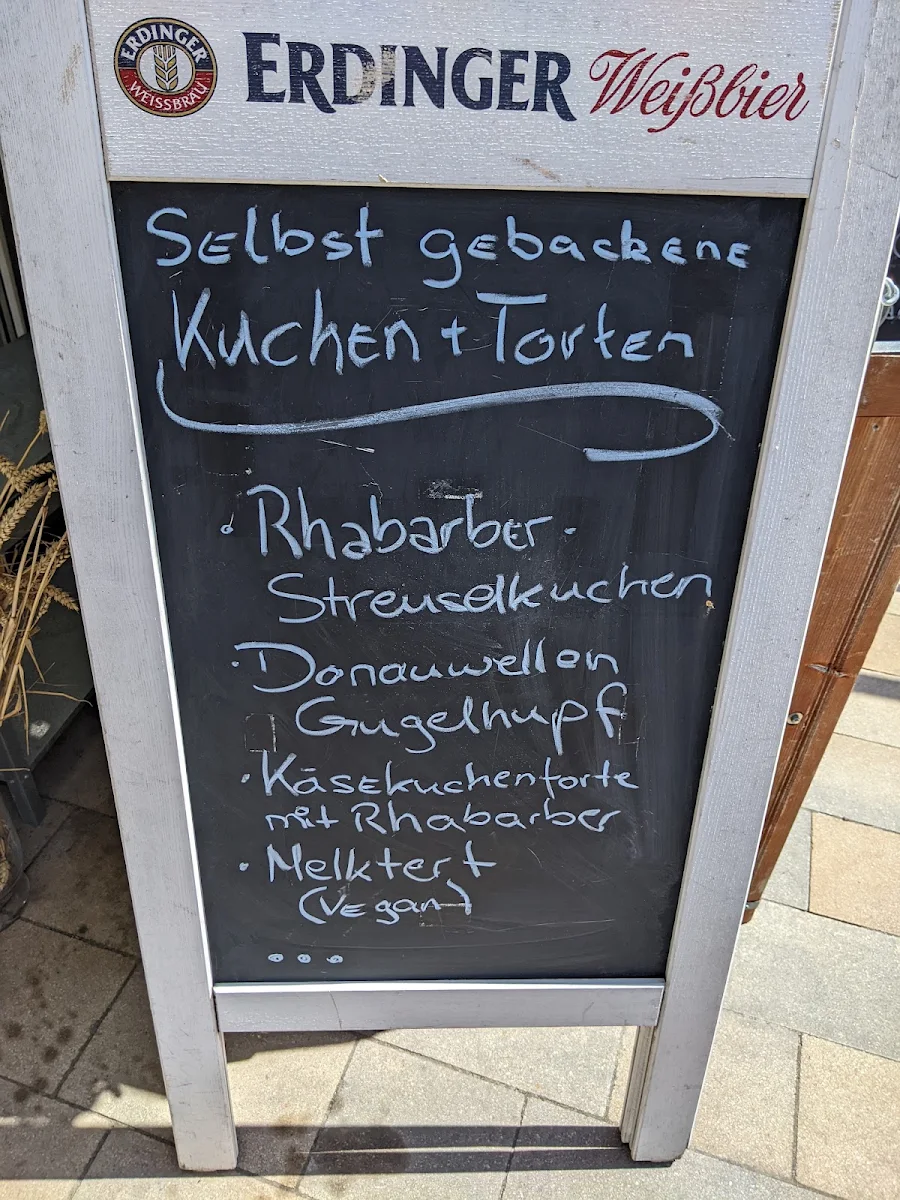 ERDINGER
WEISSBRÄU
ERDINGER Weißbier
Selbst gebackene
Kuchen + Torten
· Rhabarber-
Streuselkuchen
· Donauwellen
Gugelhupf
· Käsekuchentorte
mit Rhabarber
· Melktert
(Vegan)
...